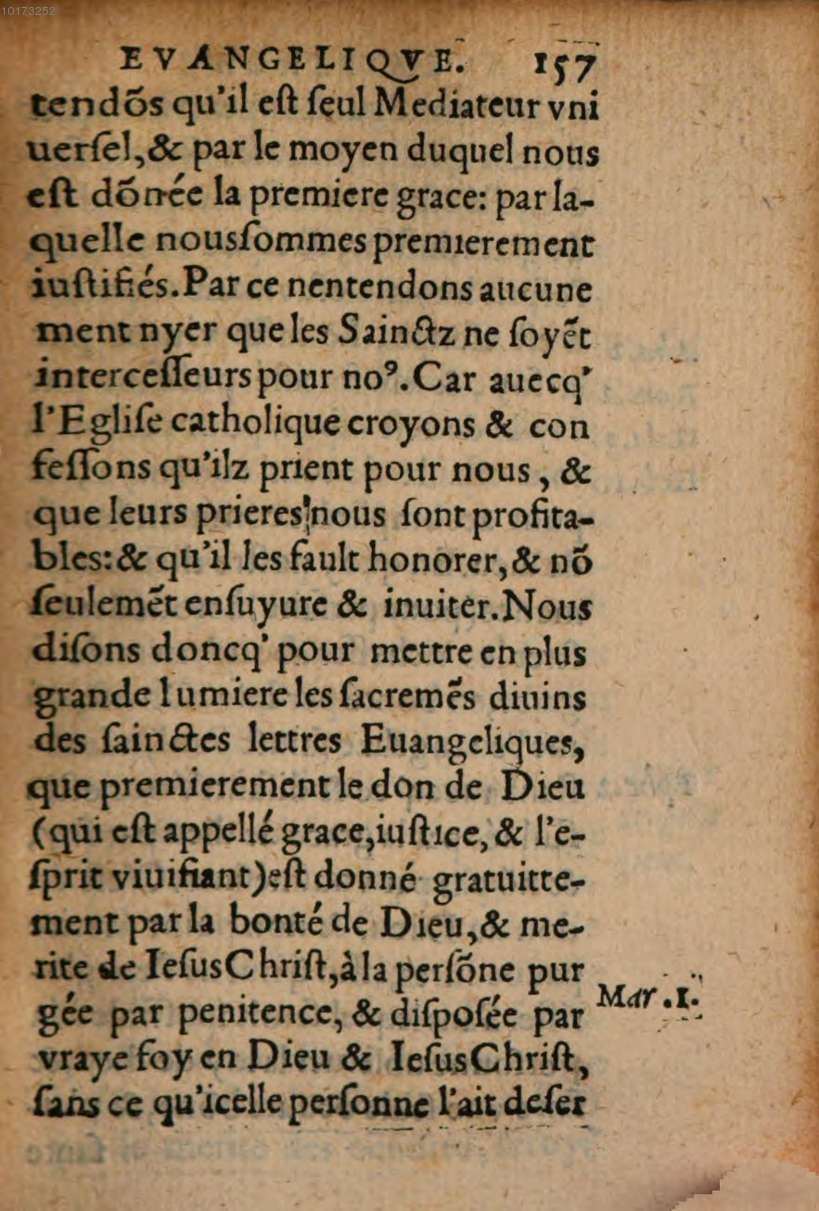 10173252
EVANGELIQVE. 157
tendõs qu'il eſt ſeul Mediateur vni
uerſel,& par le moyen duquel nous
eſt dõnée la premiere grace: par la-
quelle nousſommes premierement
iuſtifiés.Par ce nentendons aucune
ment nyer que les Sainctz ne ſoyẽt
interceſſeurs pour noꝰ. Car auecq'
l'Egliſe catholique croyons & con
feſſons qu'ilz prient pour nous, &
que leurs prieres nous ſont profita-
bles:& qu'il les fault honorer,& nõ
ſeulemẽt enſuyure & inuiter.Nous
diſons doncq' pour mettre en plus
grande lumiere les ſacremẽs diuins
des ſainctes lettres Euangeliques,
que premierement le don de Dieu
(qui eſt appellé grace,iuſtice, & l'e-
ſprit viuifiant)eſt donné gratuitte-
ment par la bonté de Dieu,& me-
rite de IeſusChriſt,à la perſõne pur
gée par penitence, & diſpoſée par
Mar.1.
vraye foy en Dieu & IeſusChriſt,
ſans ce qu'icelle perſonne l'ait deſer